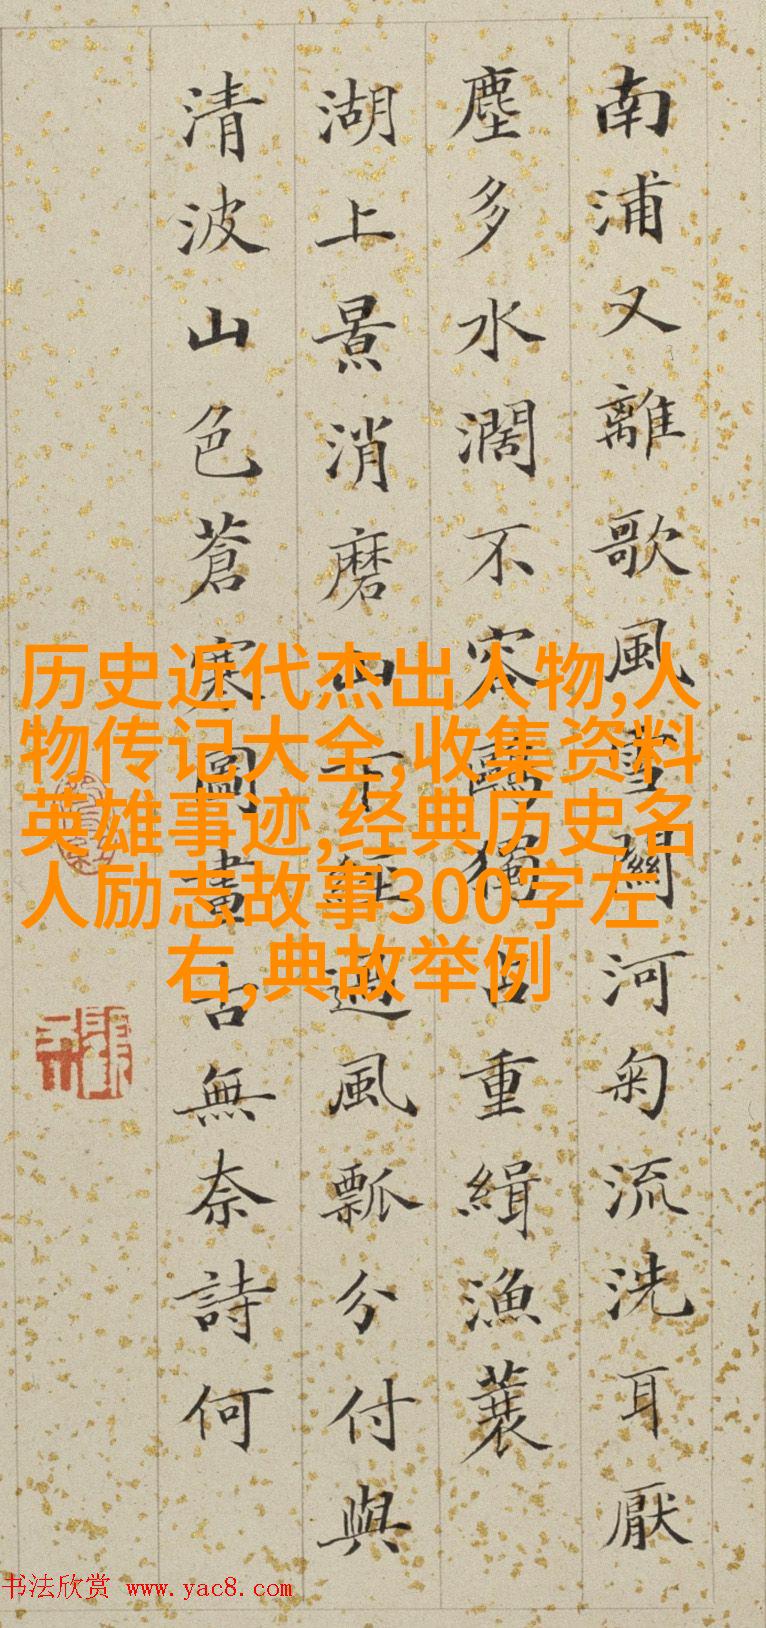 南浦又離歌風雪關河匊流洗耳厭
塵多水濶不容鷗獨占重緝漁蓑
湖上景消磨山下經過風瓢分付與
清波山色蒼寒圖畫古無奈詩何
历史近代杰出人物,人
物传记大全,收集资料
英雄事迹,经典历史名
人励志故事300字左
右,典故举例
书法欣赏 www.yac8.com